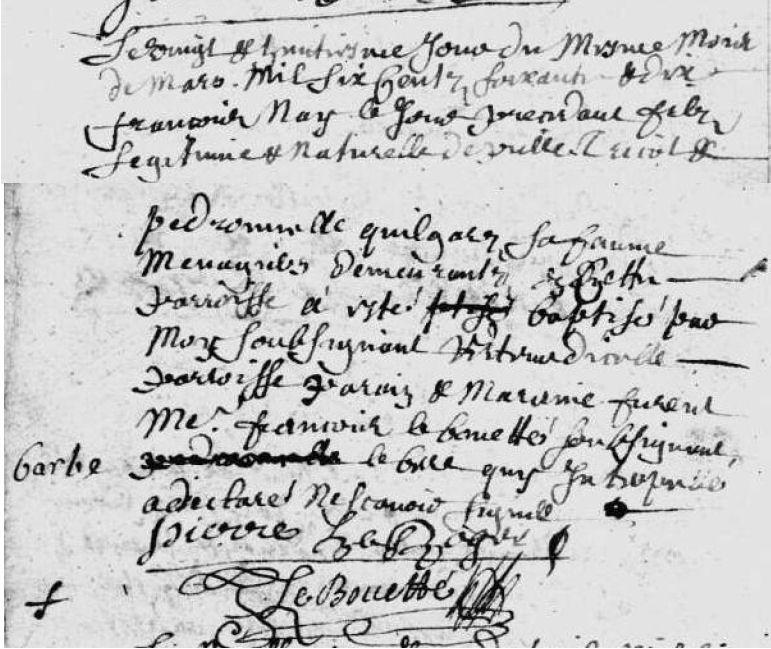 Le vingt & huitiesme Jour du Mesme Mois
de Mars Mil six Centz soixante & dix
francois Nay le Jour precedant filz
Legitime & Naturelle de Tricot &
pedronnelle quilgarz sa famme
Menagiers demeurantz En Cette
parroisse a esté baptisé par
Moy soubsignant dicelle
parroisse parain & Maraine furent
Me. francois le bouetté soubsignant
barbe le barz quy Interpellé
a declaré Ne scavoir signer
pierre
Le Bouetté